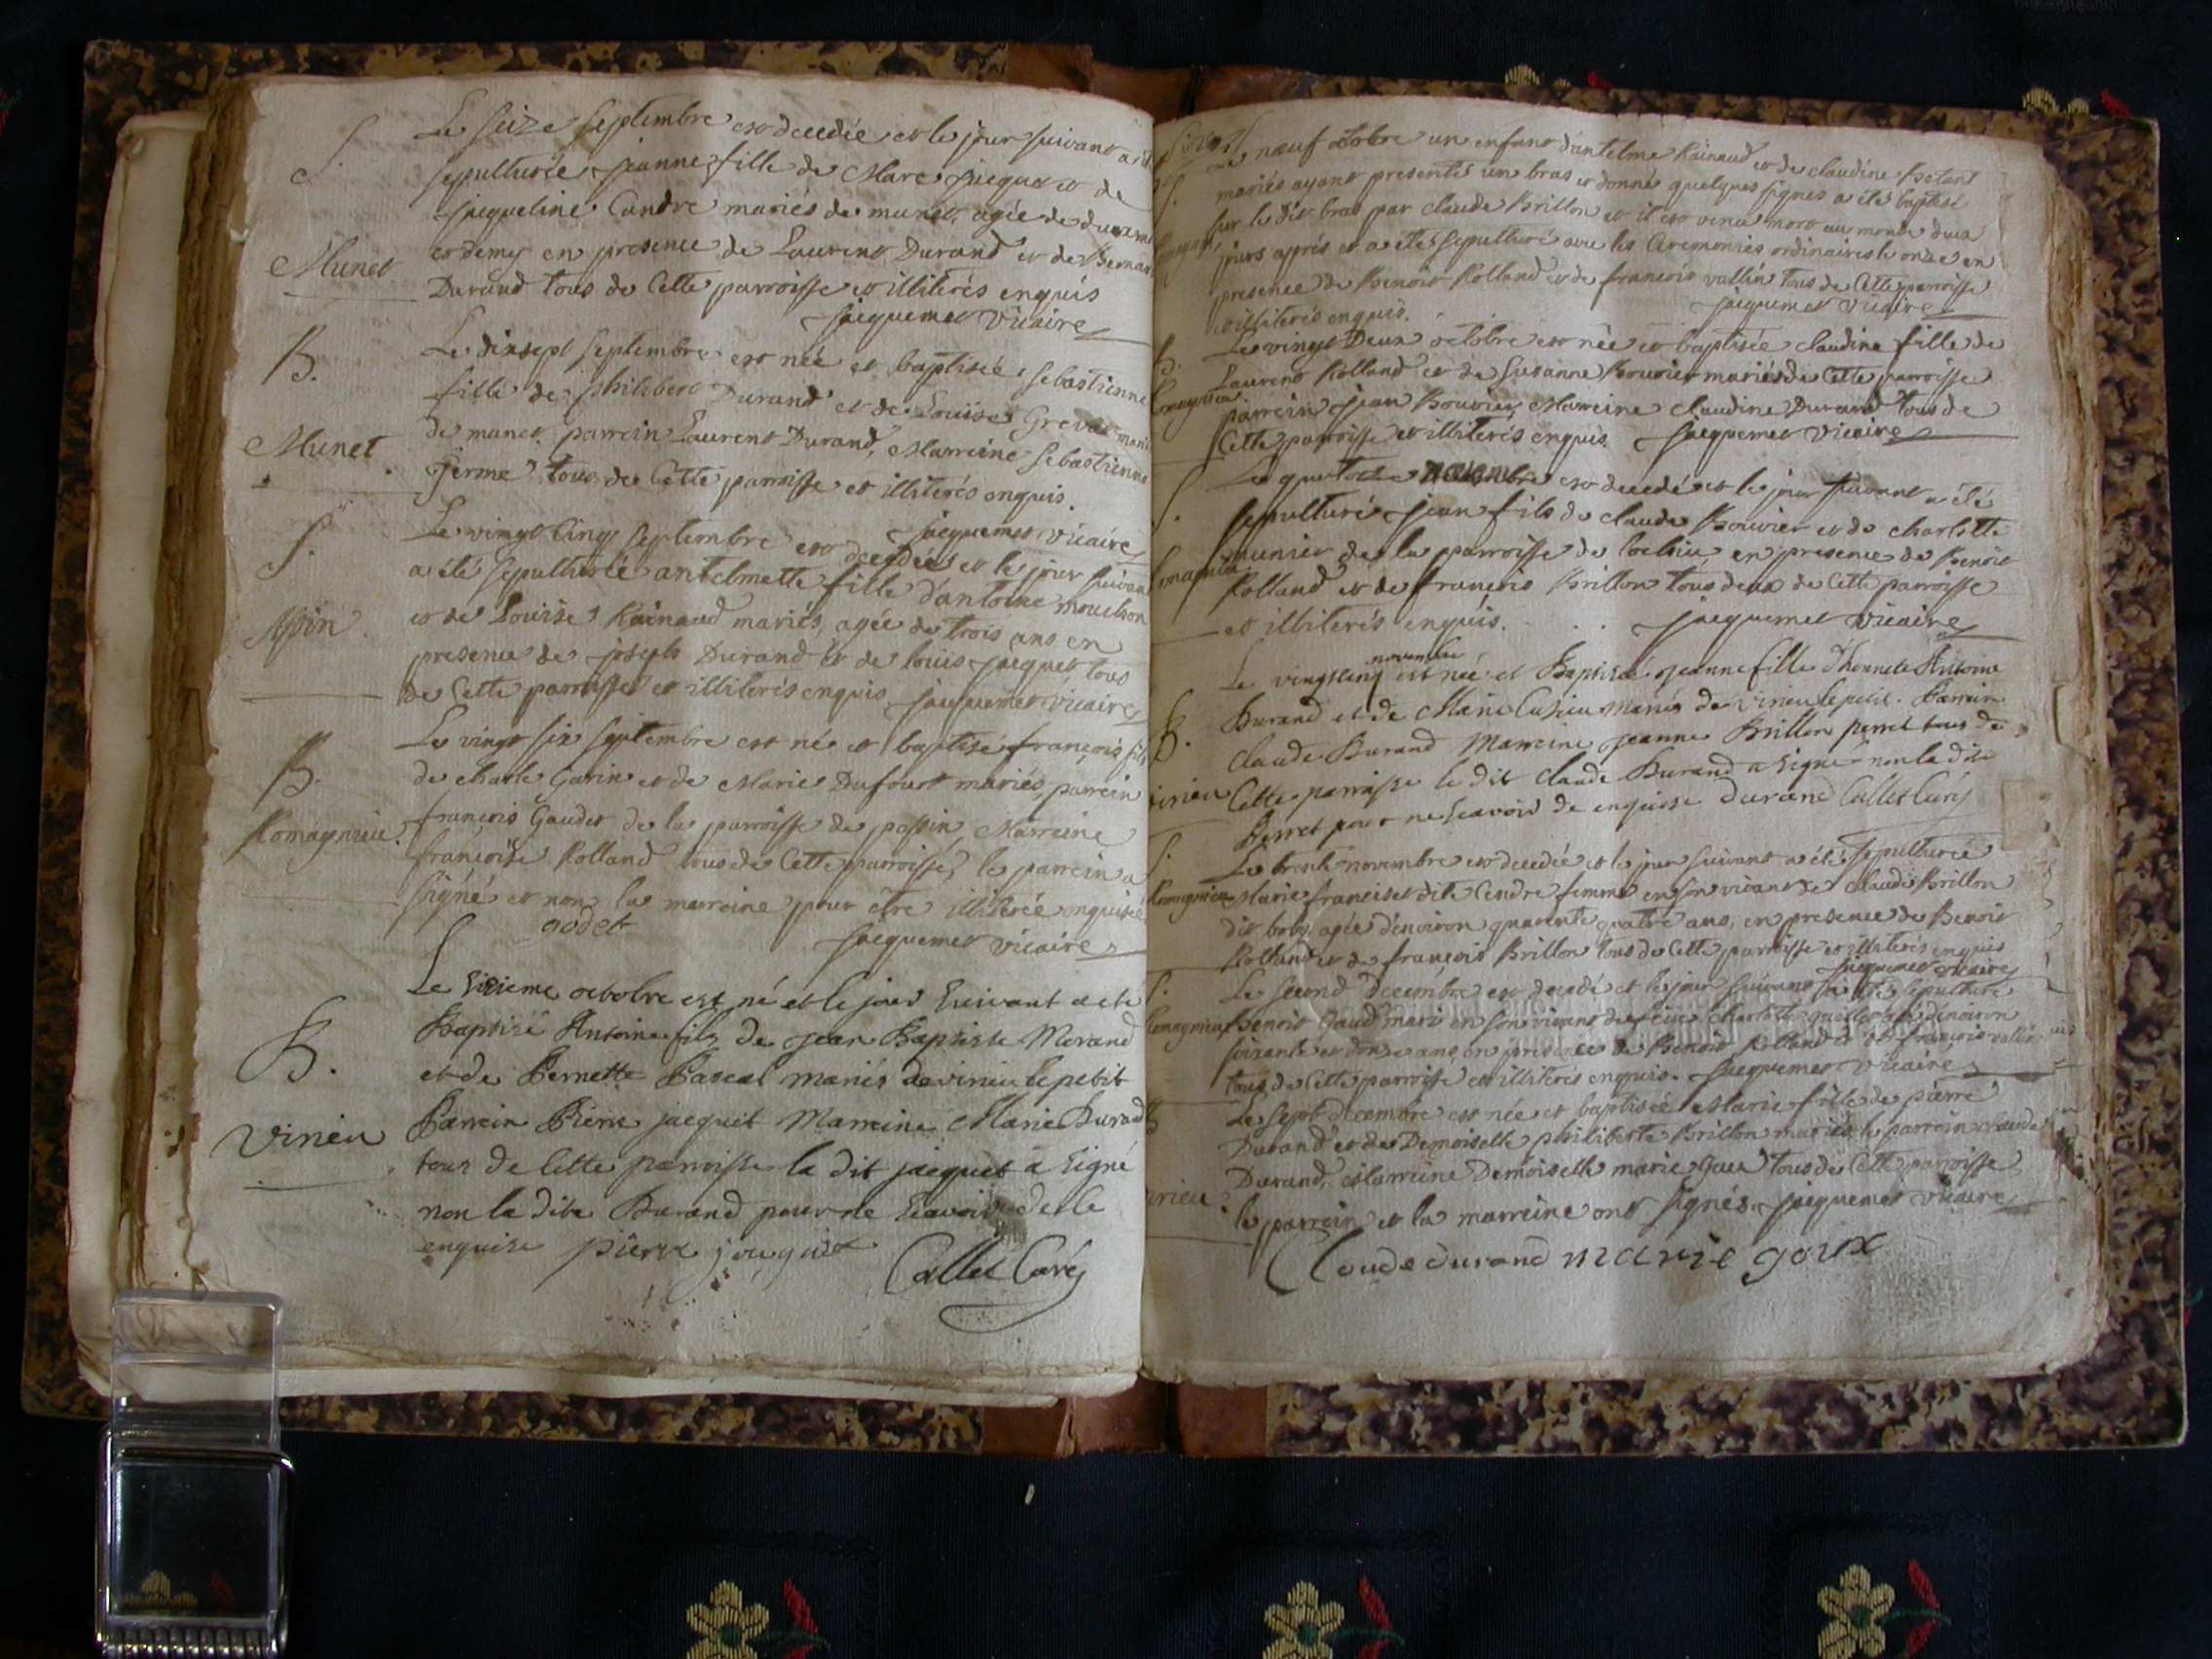 S.
Le seize septembre est decedée et le jour suivant a été
sepulturée jeanne fille de Marc jacquet et de
jacqueline Cendre mariés de munet, agée de deux ans
et demy en presence de Laurent Durand et de Bernard
Munet
Durand tous de Cette parroisse et illiterés enquis
jacquemet vicaire
B.
Le dixsept septembre est née et baptisée sebastienne
fille de philibert Durand et de Louise Grevat mariés
de munet parrein Laurent Durand, Marreine sebastienne
Munet
germe tous de Cette parroisse et illiterés enquis.
jacquemet vicaire
S.
Le vingt Cinq septembre est decedée et le jour suivant
a été sepulturée antelmette fille d'antoine
Assin
et de Louise Rainaud mariés, agée de trois ans en
presence de joseph Durand et de louis jacquet tous
de Cette parroisse et illiterés enquis jacquemet vicaire
B.
Le vingt six septembre est né et baptisé françois fils
de charle Garin et de Marie Dufour mariés, parrein
Romagnieu.
françois Gaudet de la parroisse de passin, Marreine
françoise Rolland tous de Cette parroisse, le parrein a
signé et non la marreine pour etre illiterée enquise
godet
jacquemet vicaire
Le sixieme octobre est né et le jour suivant a eté
B.
Baptisé Antoine fils de jean Baptiste Morand
et de Pernette Pascal mariés de virieu le petit
Virieu
Parrein Pierre jacquet Marreine Marie Durand
tous de Cette parroisse le dit jacquet a signé
non la dite Durand pour ne scavoir de le
enquise pierre jacquet
Callet Curé
Le neuf octobre un enfant d'antelme Rainaud et de claudine
mariés ayant presenté un bras et donné quelques signes a été baptisé
S.
sur le dit bras par claude Brillon et il est venu mort au monde deux
jours apprés et a été sepulturé avec les Ceremonies ordinaires le onze en
presence de Benoit Rolland et de françois vallin tous de Cette parroisse
et illiterés enquis.
jacquemet vicaire
B.
Le vingt Deux octobre est née et baptisée claudine fille de
Romagnieu
Laurent Rolland et de Susanne Bouvier mariés de Cette parroisse
parrein jean Bouvier, Marreine claudine Durand tous de
Cette parroisse et illiterés enquis. jacquemet vicaire
S.
Le quatorze novembre est decedé et le jour suivant a été
sepulturé jean fils de claude Bouvier et de charlotte
Romagnieu
munier de la parroisse de lochieu en presence de Benoit
Rolland et de françois Brillon tous deux de Cette parroisse
et illiterés enquis. jacquemet vicaire
novembre
Le vingtcinq est née et Baptisée jeanne fille d'honnete Antoine
B.
Durand et de Marie Mariés de Virieu le petit. Parrein
Claude Durand Marreine jeanne Brillon perret tous de
Virieu
Cette parroisse le dit Claude Durand a signé non la dite
Perret pour ne scavoir de enquise durand Callet Curé
S.
Le trente novembre est decedée et le jour suivant a été sepulturée
Romagnieu
Marie dite Cendre femme en son vivant de claude Brillon
dit agée d'environ quarente quatre ans, en presence de Benoit
Rolland et de françois Brillon tous de Cette parroisse et illiterés enquis
jacquemet vicaire
S.
Le second decembre est decedé et le jour suivant a été sepulturé
Romagnieu
Benoit Gaud mari en son vivant de feüe charlotte agé d'environ
soixante et ans en presence de Benoit Rolland et de françois vallin
tous de Cette parroisse et illiterés enquis. jacquemet vicaire
B
Le sept decembre est née et baptisée Marie fille de pierre
Durand et de Demoiselle philiberte Brillon mariés le parrein claude
Durand, Marreine Demoiselle marie tous de Cette parroisse
Virieu
le parrein et la marreine ont signés. jacquemet vicaire
Claude durand marie goux